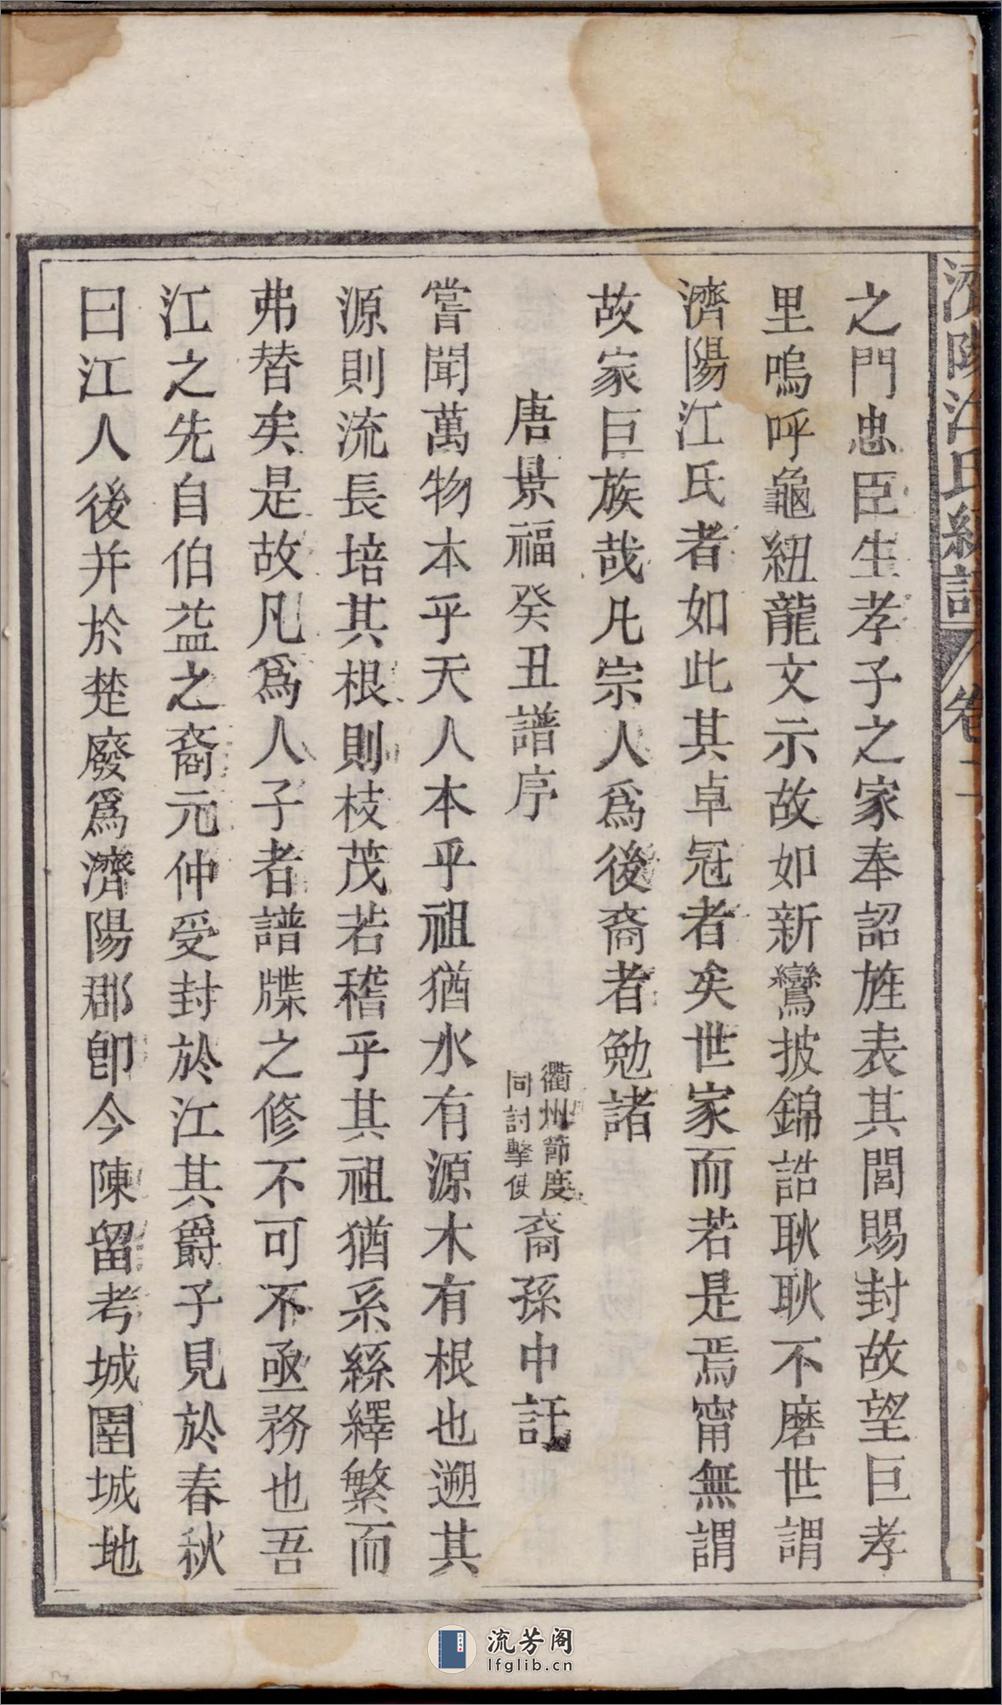 濟陽江氏統譜 卷二
之門忠臣生孝子之家奉詔旌表其閭賜封故望巨孝
里嗚呼龜紐龍文示故如新鸞披錦誥耿耿不磨世謂
濟陽江氏者如此其卓冠者矣世家而若是焉甯無謂
故家巨族哉凡宗人爲後裔者勉諸
唐景福癸丑譜序 衢州節度同討擊使裔孫中訐
嘗聞萬物本乎天人本乎祖猶水有源木有根也遡其
源則流長培其根則枝茂若稽乎其祖猶系絲繹繁而
弗替矣是故凡爲人子者譜牒之修不可不亟務也吾
江之先自伯益之裔元仲受封於江其爵子見於春秋
曰江人後并於楚廢爲濟陽郡卽今陳留考城圉城地
流芳阁
lfglib.cn